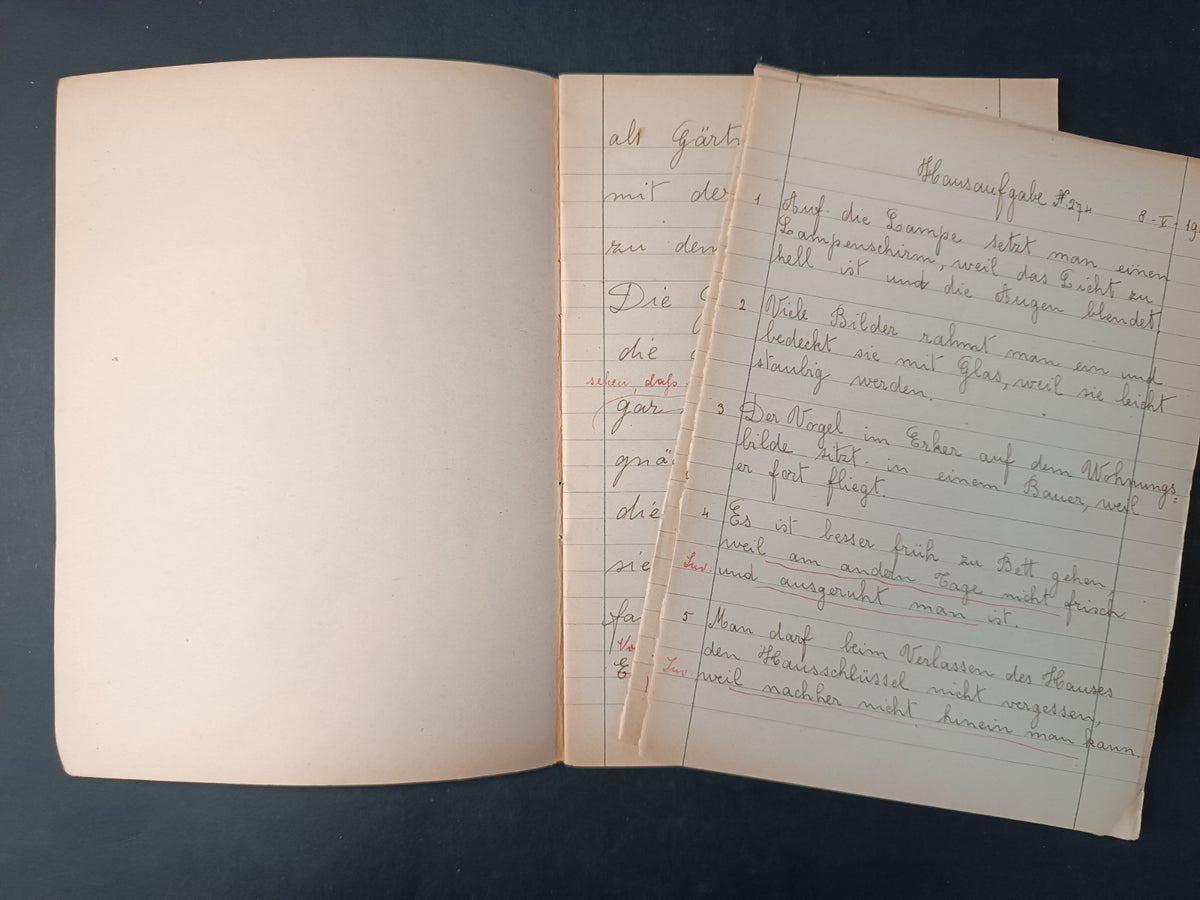 als Gärt
mit der
zu den
Die
die
sehen, dass
gar
gnä
die
sie
fa
Vo
E
Hausaufgabe № 274 8-V-19
1 Auf die Lampe setzt man einen
Lampenschirm, weil das Licht zu
hell ist und die Augen blendet.
2 Viele Bilder rahmt man ein und
bedeckt sie mit Glas, weil sie leicht
staubig werden.
3 Der Vogel im Erker auf dem Wohnungs=
bilde sitzt in einem Bauer, weil
er fort fliegt.
4 Es ist besser früh zu Bett gehen,
weil am andern Tage nicht frisch
Inv. und ausgeruht man ist.
5 Man darf beim Verlassen des Hauses
den Hausschlüssel nicht vergessen,
Inv. weil nachher nicht hinein man kann.